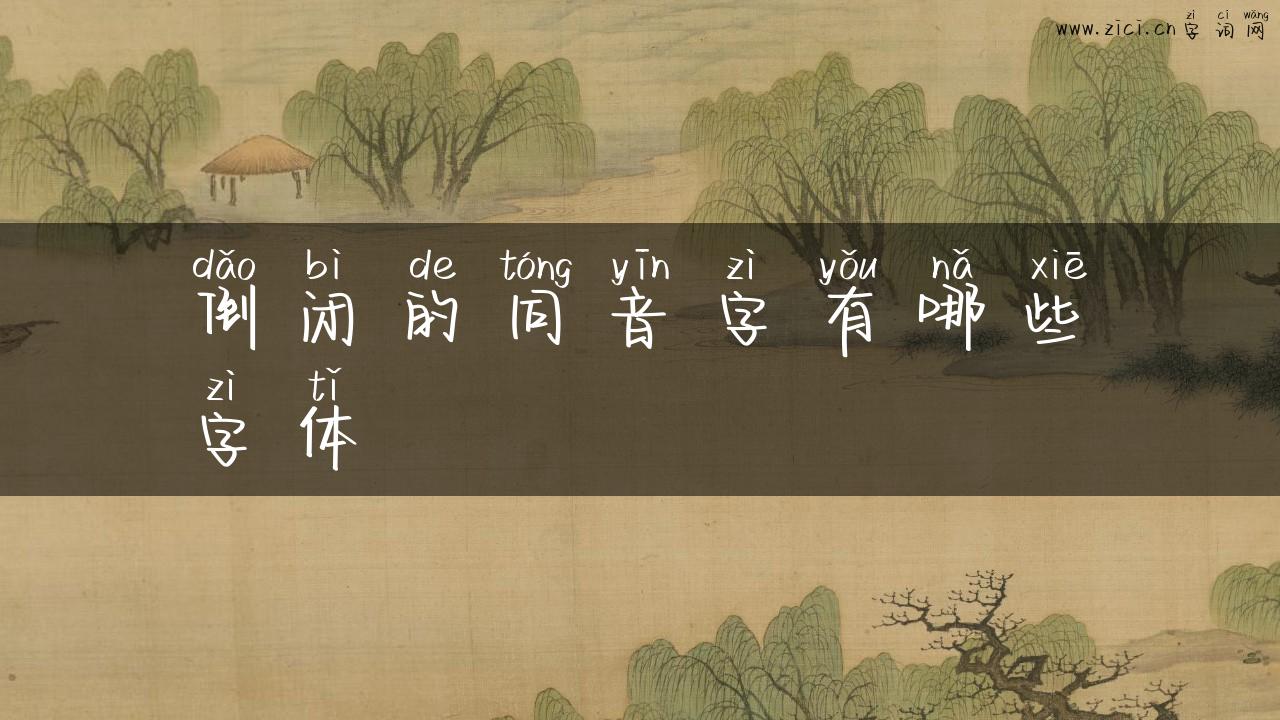 zì cí wǎng
www.zici.cn 字 词 网
dǎo bì de tóng yīn zì yǒu nǎ xiē
倒 闭 的 同 音 字 有 哪 些
zì tǐ
字 体